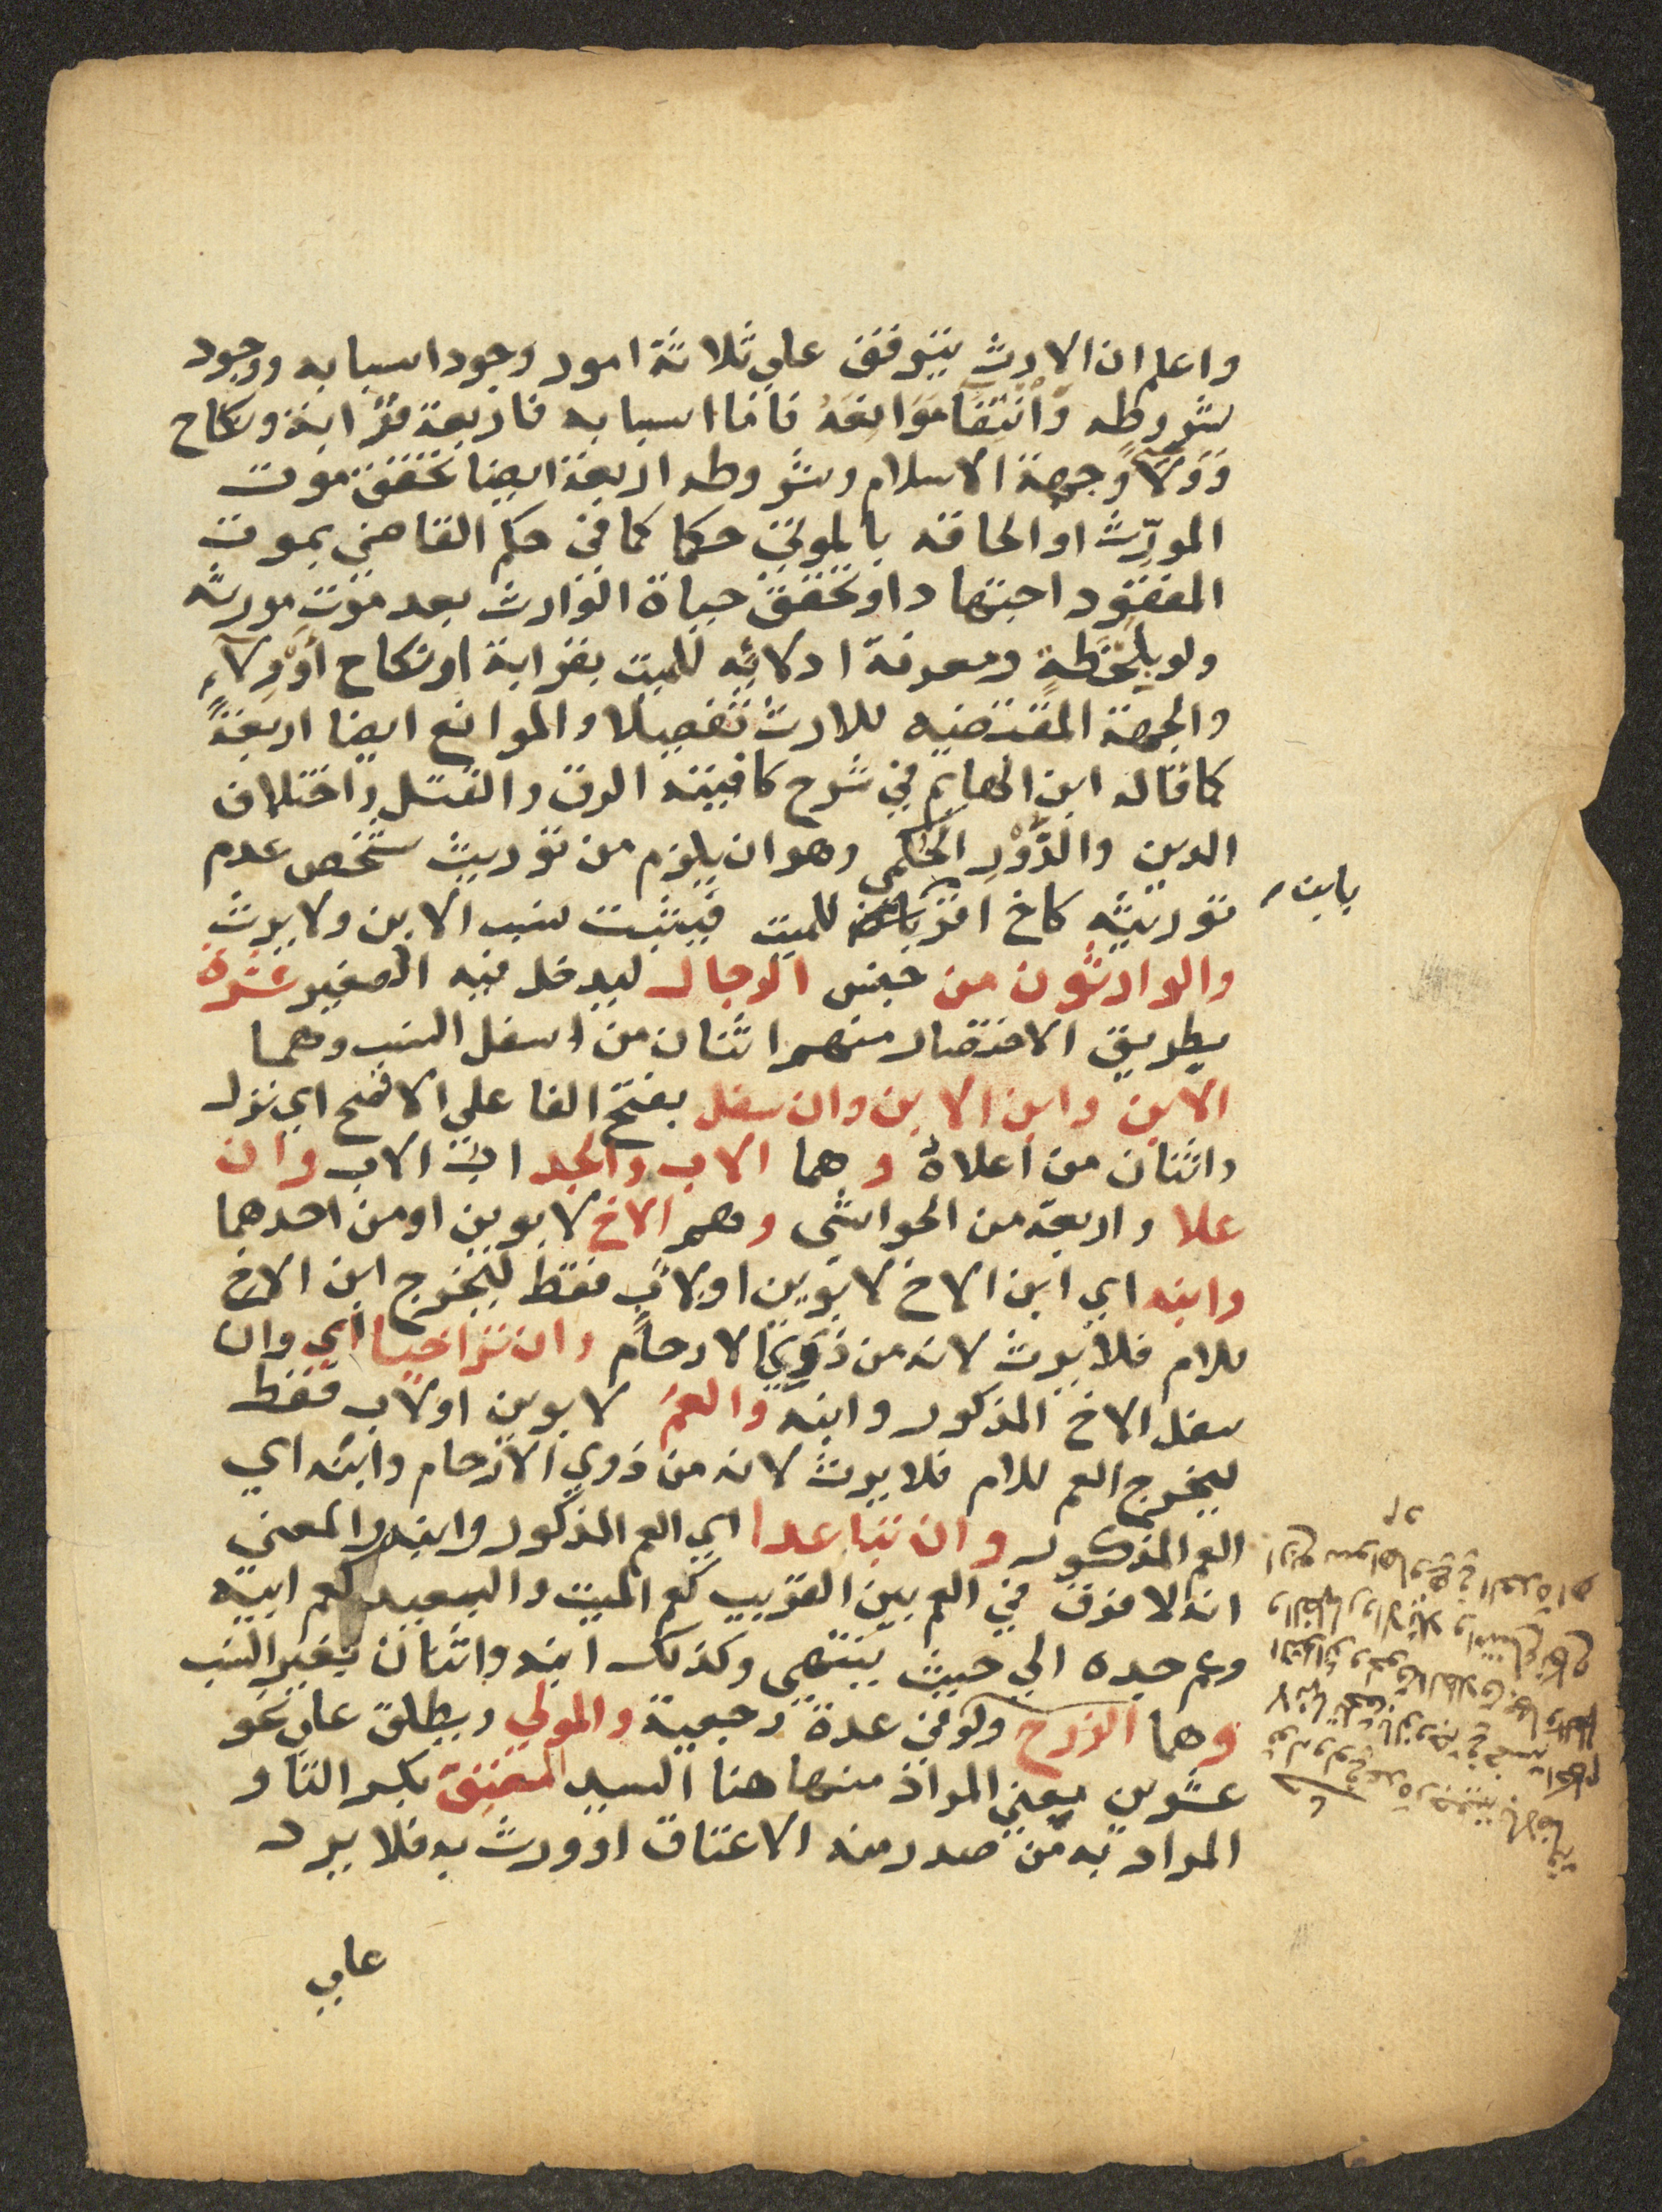 واعلم ان الارث يتوقف علي ثلاثة امور وجود اسبابه ووجود
شروطه وَٱنْتِفَا مَوَانِعَهُ فاما اسبابه فاربعة قرابة ونكاح
وَوَلآ وجهة الاسلام وشروطه اربعة ايضا تحقق موت
المورِّث او الحاقه بالموتي حكما كما في حكم القاضي بموت
المفقود اجتهادا وتحقق حياة الوارث بعد موت مورثه
ولو بلحظة ومعرفة ادلائه للميت بقرابة او نكاح أَوْ وِلَآءٍ
والجهة المقتضيه للارث تفصيلا والموانع ايضا اربعةً
كما قاله ابن الهايم في شرح كافيته الرق والقتل واختلاف
الدين والدَّوْر الحُكمي وهو ان يلزم من توريث شخص عدم
توريثه كاخ اقر بابن للميت فيثبت نسب الابن ولا يرث
والوارثون من جنس الرجال ليدخل فيه الصغير عشرة
بطريق الاختصار منهم اثنان من اسفل النسب وهما
الابن وابن الابن وان سفل بفتح الفا علي الافصح اي نزل
واثنان من اعلاه وهما الاب والجد اب الاب وان
علا واربعة من الحواشي وهم الاخ لابوين او من احدهما
وابنه اي ابن الاخ لابوين او لاب فقط ليخرج ابن الاخ
للام فلا يرث لانه من ذوي الارحام وان تراخيا اي وان
سفل الاخ المذكور وابنه والعم لابوين او لاب فقط
ليخرج العم للام فلا يرث لانه من ذوي الارحام وابنه اي
العم المذكور وان تباعدا اي العم المذكور وابنه والمعني
انه لا فرق في العم بين القريب كعم الميت والبعيد كعم ابيه
وعم جده الي حيث ينتهي وكذلك ابنه واثنان بغير النسب
وهما الزوج ولو في عدة رجعية والمولي ويطلق علي نحو
عشرين معني المراد منها هنا السيد المعتِق بكسر التا و
المراد به من صدر منه الاعتاق او ورث به فلا يرد
علي